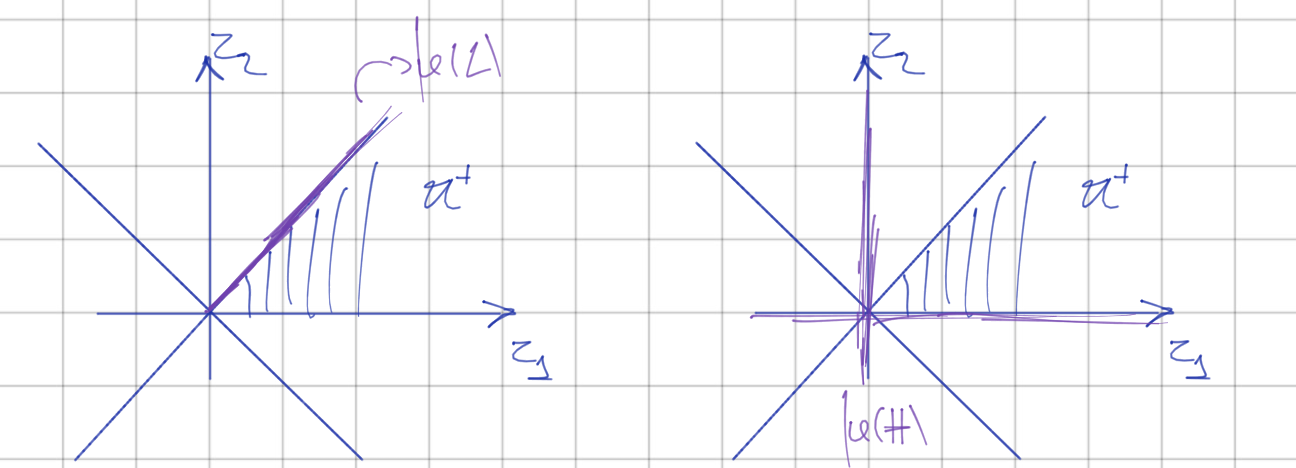 z₂
μ(L)
𝔞⁺
z₁
z₂
𝔞⁺
z₁
μ(H)